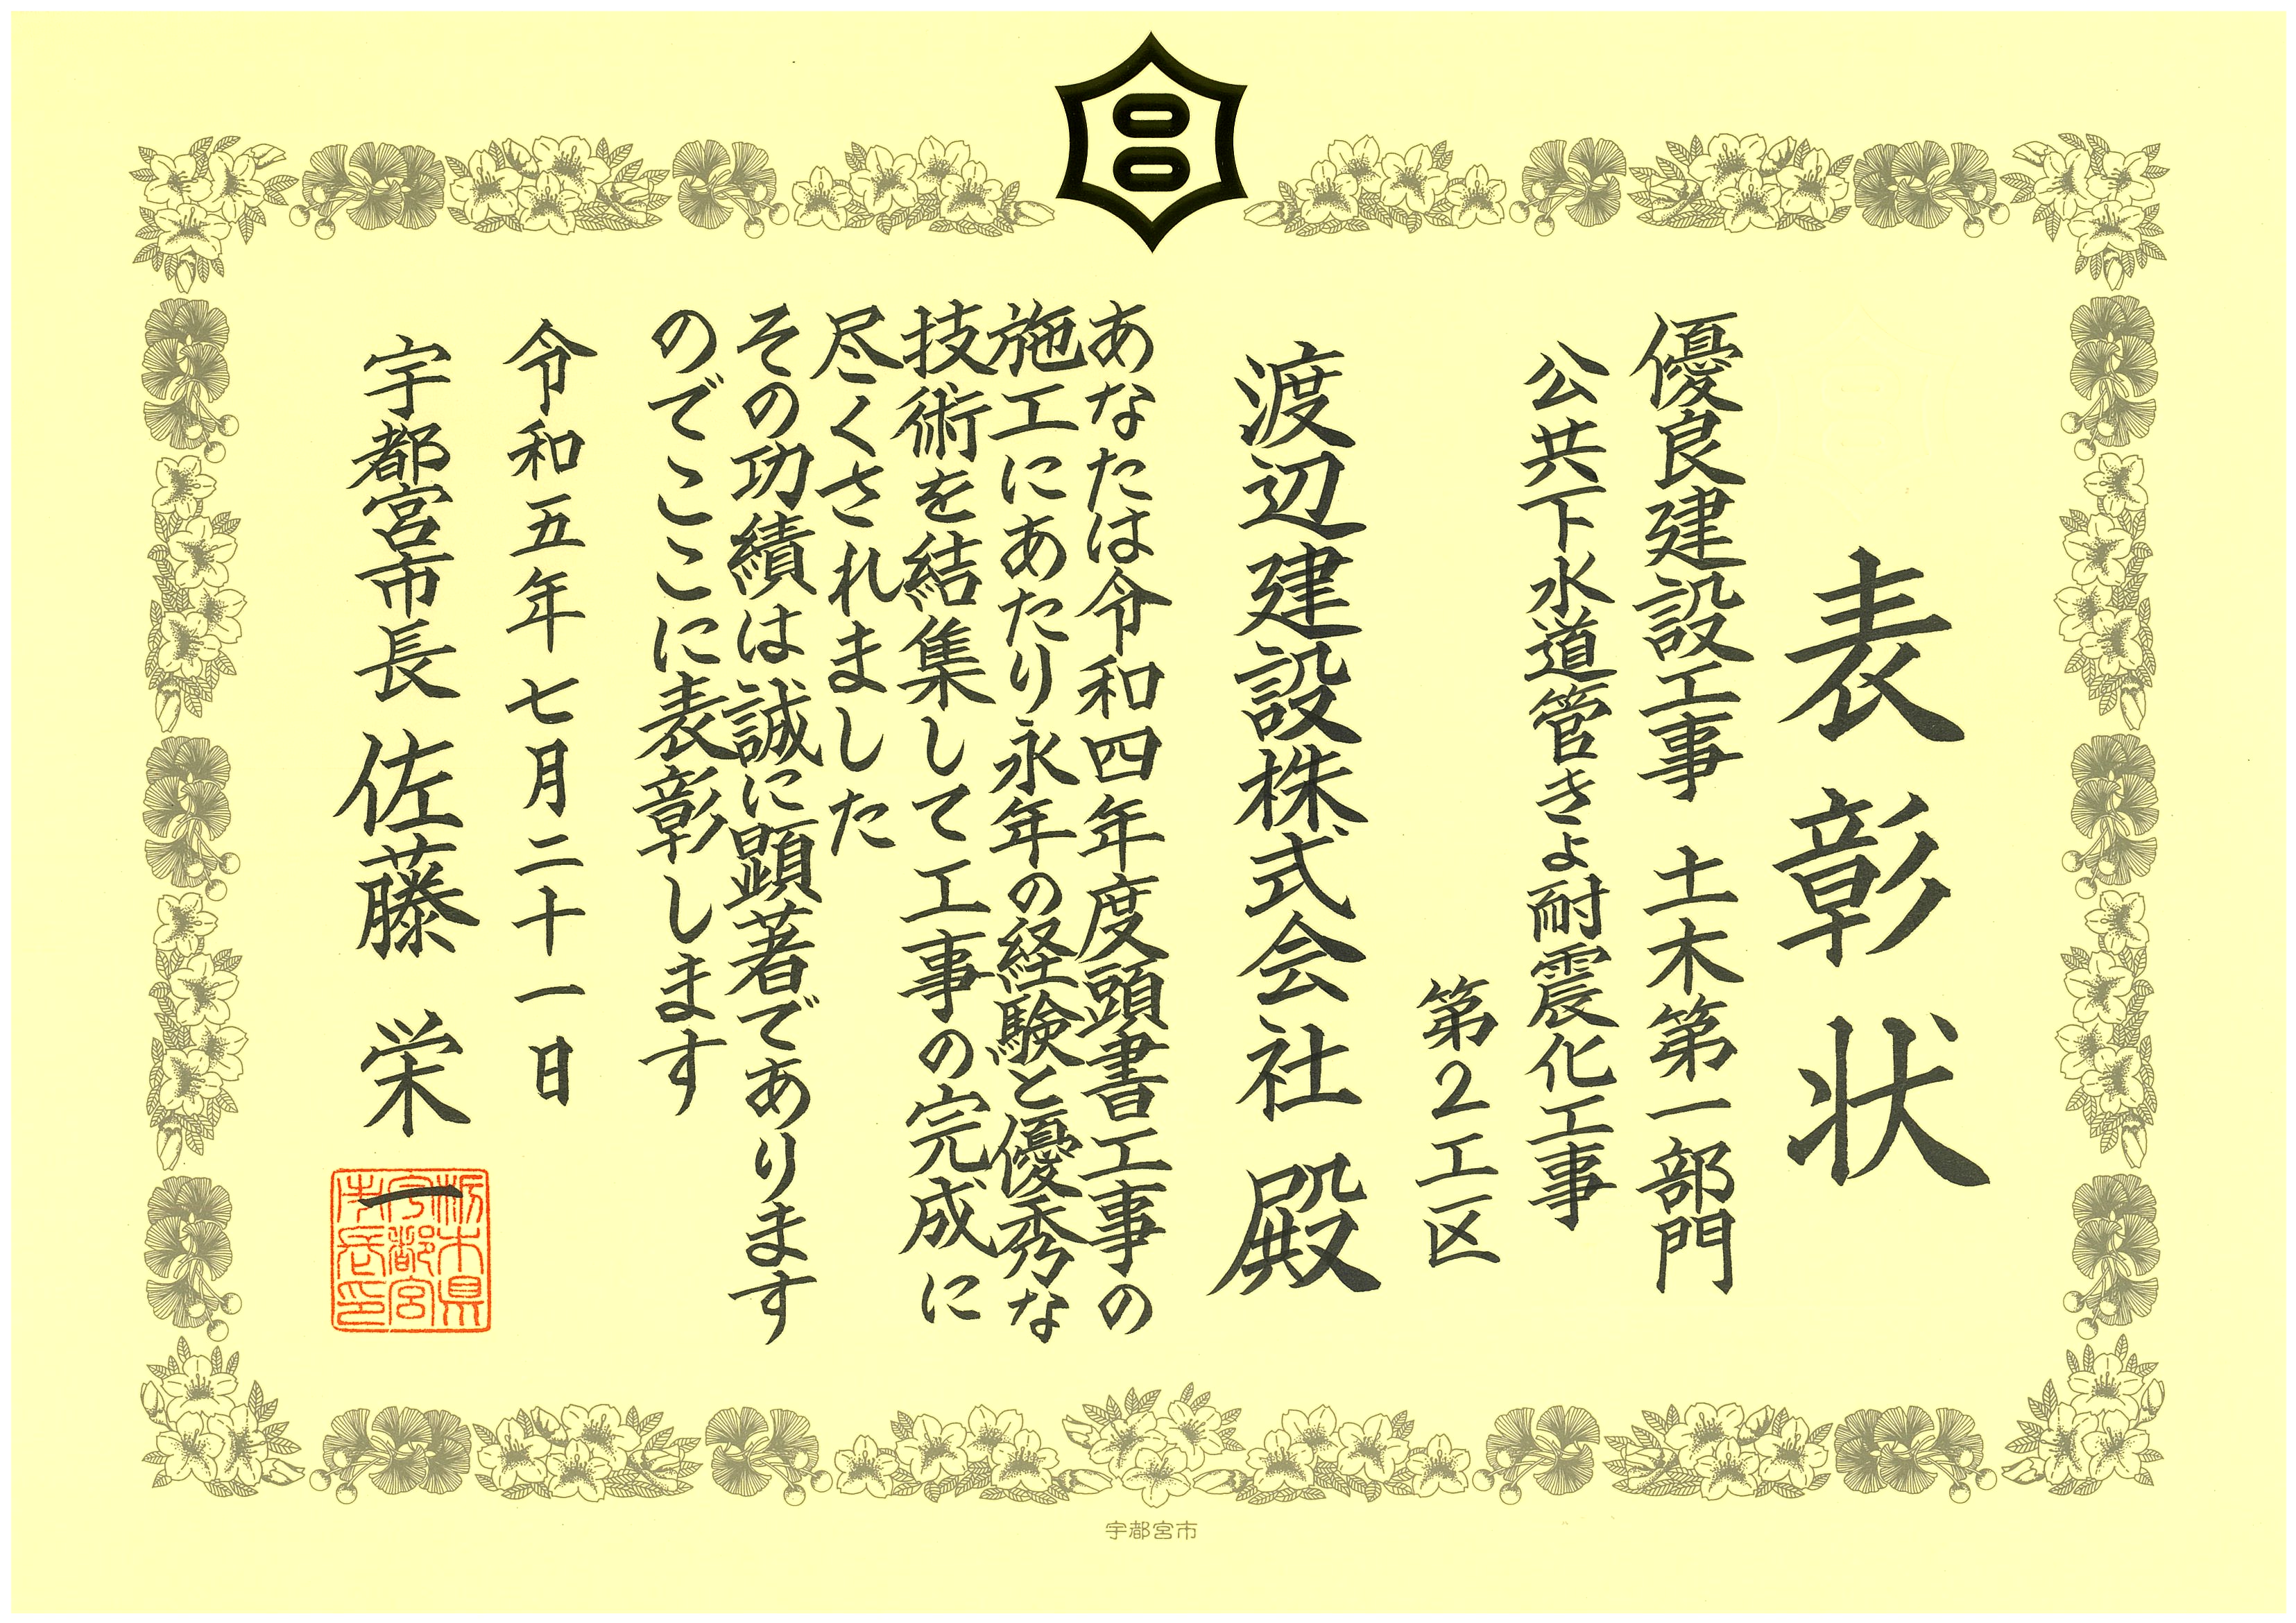 表彰状
優良建設工事 土木第一部門
公共下水道管きょ耐震化工事
第2工区
渡辺建設株式会社 殿
あなたは令和四年度頭書工事の
施工にあたり永年の経験と優秀な
技術を結集して工事の完成に
尽くされました
その功績は誠に顕著であります
のでここに表彰します
令和五年七月二十一日
宇都宮市長 佐藤 栄一
栃木県
宇都宮
市長印
宇都宮市